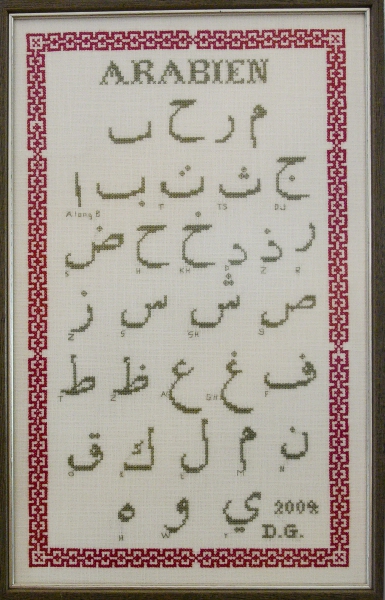 ARABIEN
م ر ح ٮ
ا ب ت ث ج
A long B T TS DJ
ض ح خ د ذ ر
S H KH D Z R
ز س ش ص
Z S SH S
ط ظ ع غ ف
T Z A GH F
ق ك ل م ن
Q K L M N
ه و ي 2009
H W Y D.G.